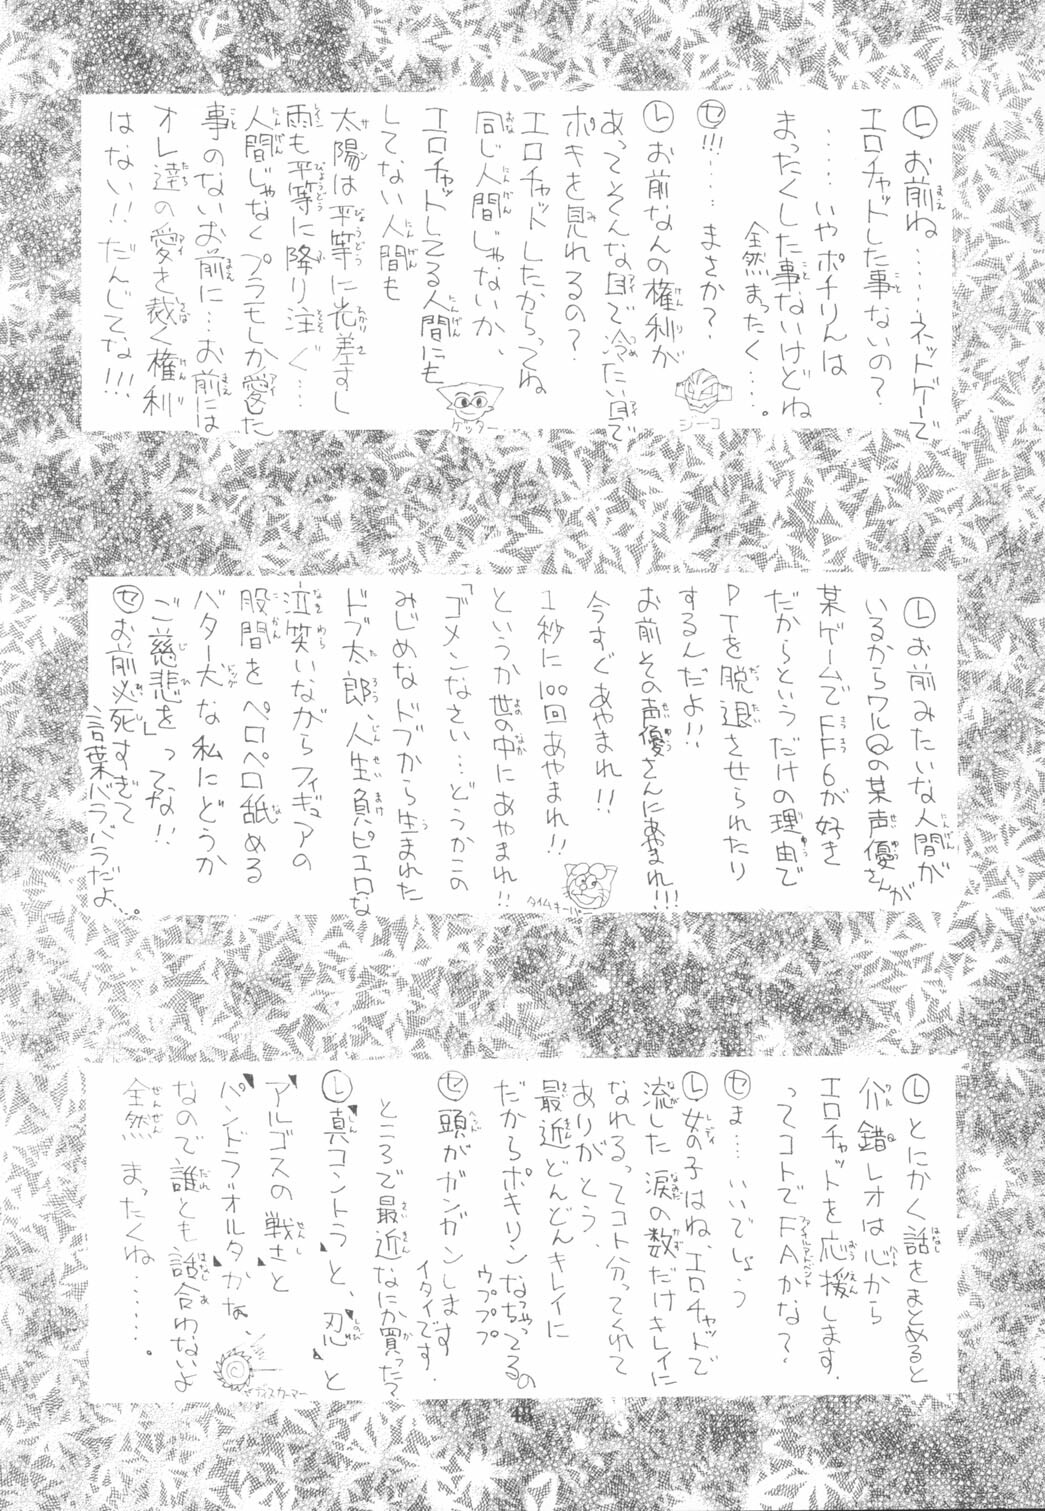 Ⓛお前ね……ネットゲーで
エロチャットした事ないの？
……いやポチリんは
まったくした事ないけどね
全然まったく……。
Ⓢ!!!…… まさか？
Ⓛお前なんの権利が
あってそんな目で冷たい目で
ポキを見れるの？
エロチャットしたからってね
同じ人間じゃないか、
エロチャットしてる人間にも
してない人間も
太陽は平等に光差すし
雨も平等に降り注ぐ…
人間じゃなくプラモしか愛した
事のないお前に…お前には
オレ達の愛を裁く権利
はない!!だんじてな!!!
シーコ
ゲッター
Ⓛお前みたいな人間が
いるからワル@の某声優さんが
某ゲームでFF6が好き
だからというだけの理由で
PTを脱退させられたり
するんだよ!!
お前その声優さんにあやまれ!!!
今すぐあやまれ!!
1秒に100回あやまれ!!
というか世の中にあやまれ!!
「ゴメンなさい…どうかこの
みじめなドブから生まれた
ドブ太郎、人生負ピエロな
泣笑いながらフィギュアの
股間をペロペロ舐める
バター犬な私にどうか
ご慈悲を」ってな!!
㋝お前必死すぎて
言葉バラバラだよ…。
タイムキーパー
Ⓛとにかく話をまとめると
介錯レオは心から
エロチャットを応援します.
ってコトでFAかな？
㋝ま… いいでしょう
Ⓛ女の子はね、エロチャットで
流した涙の数だけキレイに
なれるってコト分ってくれて
ありがとう、
最近どんどんキレイに
だからポキリンなっちゃってるの
ウププププ
㋝頭がガンガンします
イタイです.
ところで最近なにか買った？
Ⓛ真コントラと、忍と
アルゴスの戦さと
パンドラオルタかな、
なので誰とも話合わないよ
全然 まったくね……。
48